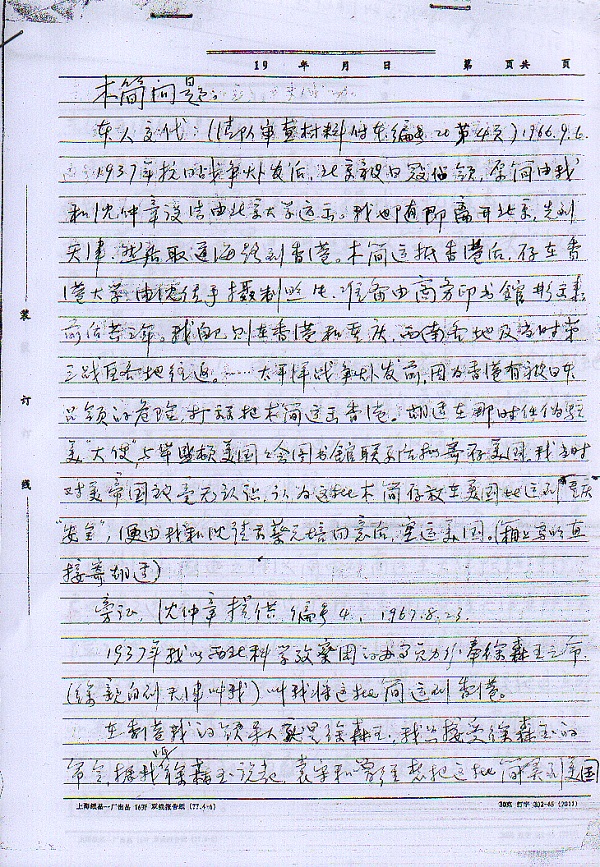 19 年 月 日 第 页共 页
木简问题：
本人交代：（清队审查材料 件东 编号20第4页）1966.9.6.
1937年抗日战争爆发后，北京被日寇占领，原简由我
和沈仲章设法由北京大学运出。我也随即离开北京，先到
天津，然后取道海路到香港。木简运抵香港后，存在香
港大学，由沈经手摄制照片，准备由商务印书馆影印
前后共三年。我自己则在香港和重庆，西南各地及当时第
三战区各地往返。……太平洋战争爆发前，因为香港有被日本
占领的危险，打算把木简运出香港。胡适在那时任伪驻
美“大使”，与华盛顿美国国会图书馆联系后拟寄存美国。我当时
对美帝国主义毫无认识，认为这批木简存放在美国比运到重庆
“安全”，便由我和沈 蔡元培同意后，运美国。（箱上写明直
接寄胡适）
旁证，沈仲章提供 编号4，1967.8.23.
1937年我以西北科学考察团 干事 奉徐森玉之命
（徐亲自到天津叫我）叫我将这批简运到香港。
在香港我的领导人就是徐森玉，我只接受徐森玉的
命令，据我 徐森玉说起，袁 和 曾经想把这批简 到美国
上海纸品一厂出品 16开 双线报告纸（77.4-6）
30克 打字 302-45（2011）
装
订
线